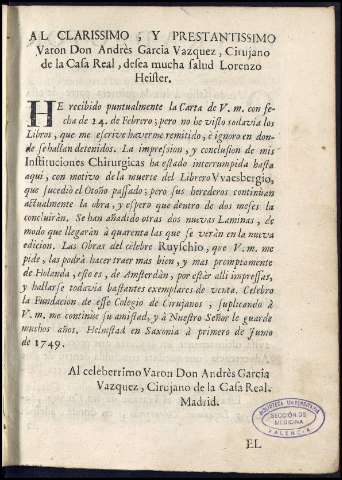 AL CLARISSIMO, Y PRESTANTISSIMO
Varon Don Andrès Garcia Vazquez, Cirujano
de la Casa Real, desea mucha salud Lorenzo
Heister.
HE recibido puntualmente la Carta de V. m. con fe-
cha de 24. de Febrero; pero no he visto todavia los
Libros, que me escrive haverme remitido, è ignoro en don-
de se hallan detenidos. La impresion, y conclusion de mis
Instituciones Chirurgicas ha estado interrumpida hasta
aqui, con motivo de la muerte del Librero Vvaesbergio,
que sucediò el Otoño passado; pero sus herederos continúan
actualmente la obra, y espero que dentro de dos meses la
concluiràn. Se han añadido otras dos nuevas Laminas, de
modo que llegaràn à quarenta las que se veràn en la nueva
edicion. Las Obras del cèlebre Ruyschio, que V. m. me
pide, las podrà hacer traer mas bien, y mas promptamente
de Holanda, esto es, de Amsterdàn, por estàr alli impressas,
y hallarse todavia bastantes exemplares de venta. Celebro
la Fundacion de esse Colegio de Cirujanos; suplicando à
V. m. me continùe su amistad, y à Nuestro Señor le guarde
muchos años. Helmstad en Saxonia à primero de Junio
de 1749.
Al celeberrimo Varon Don Andrès Garcia
Vazquez, Cirujano de la Casa Real.
Madrid.
BIBLIOTECA UNIVERSITARIA
SECCIÓN DE
MEDICINA
VALENCIA
EL